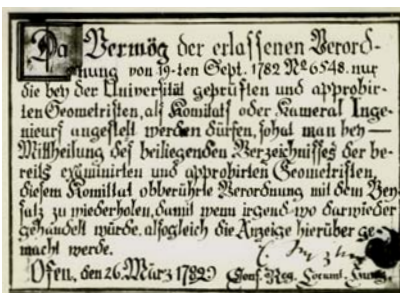 Da Vermög der erlassenen Verord-
nung von 19-ten Sept. 1782 Nº 6548. nur
die bey der Universität geprüften und approbir-
ten Geometristen, als Komitats oder Kameral Inge-
nieurs angestellt werden dürfen, so hat man bey —
Mittheilung des beiliegenden Verzeichnisses der be-
reits examinirten und approbirten Geometristen,
diesem Komittat obberührte Verordnung mit dem Bey-
satz zu wiederholen, damit wenn irgend-wo darwieder
gehandelt würde, alsogleich die Anzeige hierüber ge-
macht werde.
Ofen, den 26. März 1789
Cons. Reg. Locumt. Hung.